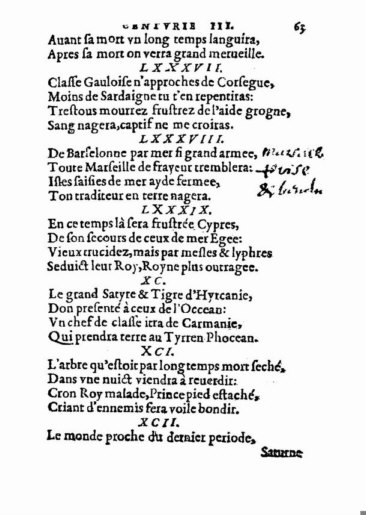 CENTVRIE III. 63
Auant ſa mort vn long temps languira,
Apres ſa mort on verra grand merueille.
LXXXVII.
Claſſe Gauloiſe n'approches de Corſegue,
Moins de Sardaigne tu t'en repentiras:
Treſtous mourrez fruſtrez de l'aide grogne,
Sang nagera, captif ne me croiras.
LXXXVIII.
De Barſelonne par mer ſi grand armee,
Toute Marſeille de frayeur tremblera:
Iſles ſaiſies de mer ayde fermee,
Ton traditeur en terre nagera.
LXXXIX.
En ce temps là ſera fruſtrée Cypres,
De ſon ſecours de ceux de mer Egee:
Vieux trucidez, mais par meſles & lyphres
Seduict leur Roy, Royne plus outragee.
XC.
Le grand Satyre & Tigre d'Hyrcanie,
Don preſenté à ceux de l'Occean:
Vn chef de claſſe itra de Carmanie,
Qui prendra terre au Tyrren Phocean.
XCI.
L'arbre qu'eſtoit par long temps mort ſeché,
Dans vne nuict viendra à reuerdir:
Cron Roy malade, Prince pied eſtaché,
Criant d'ennemis fera voile bondir.
XCII.
Le monde proche du dernier periode,
Saturne